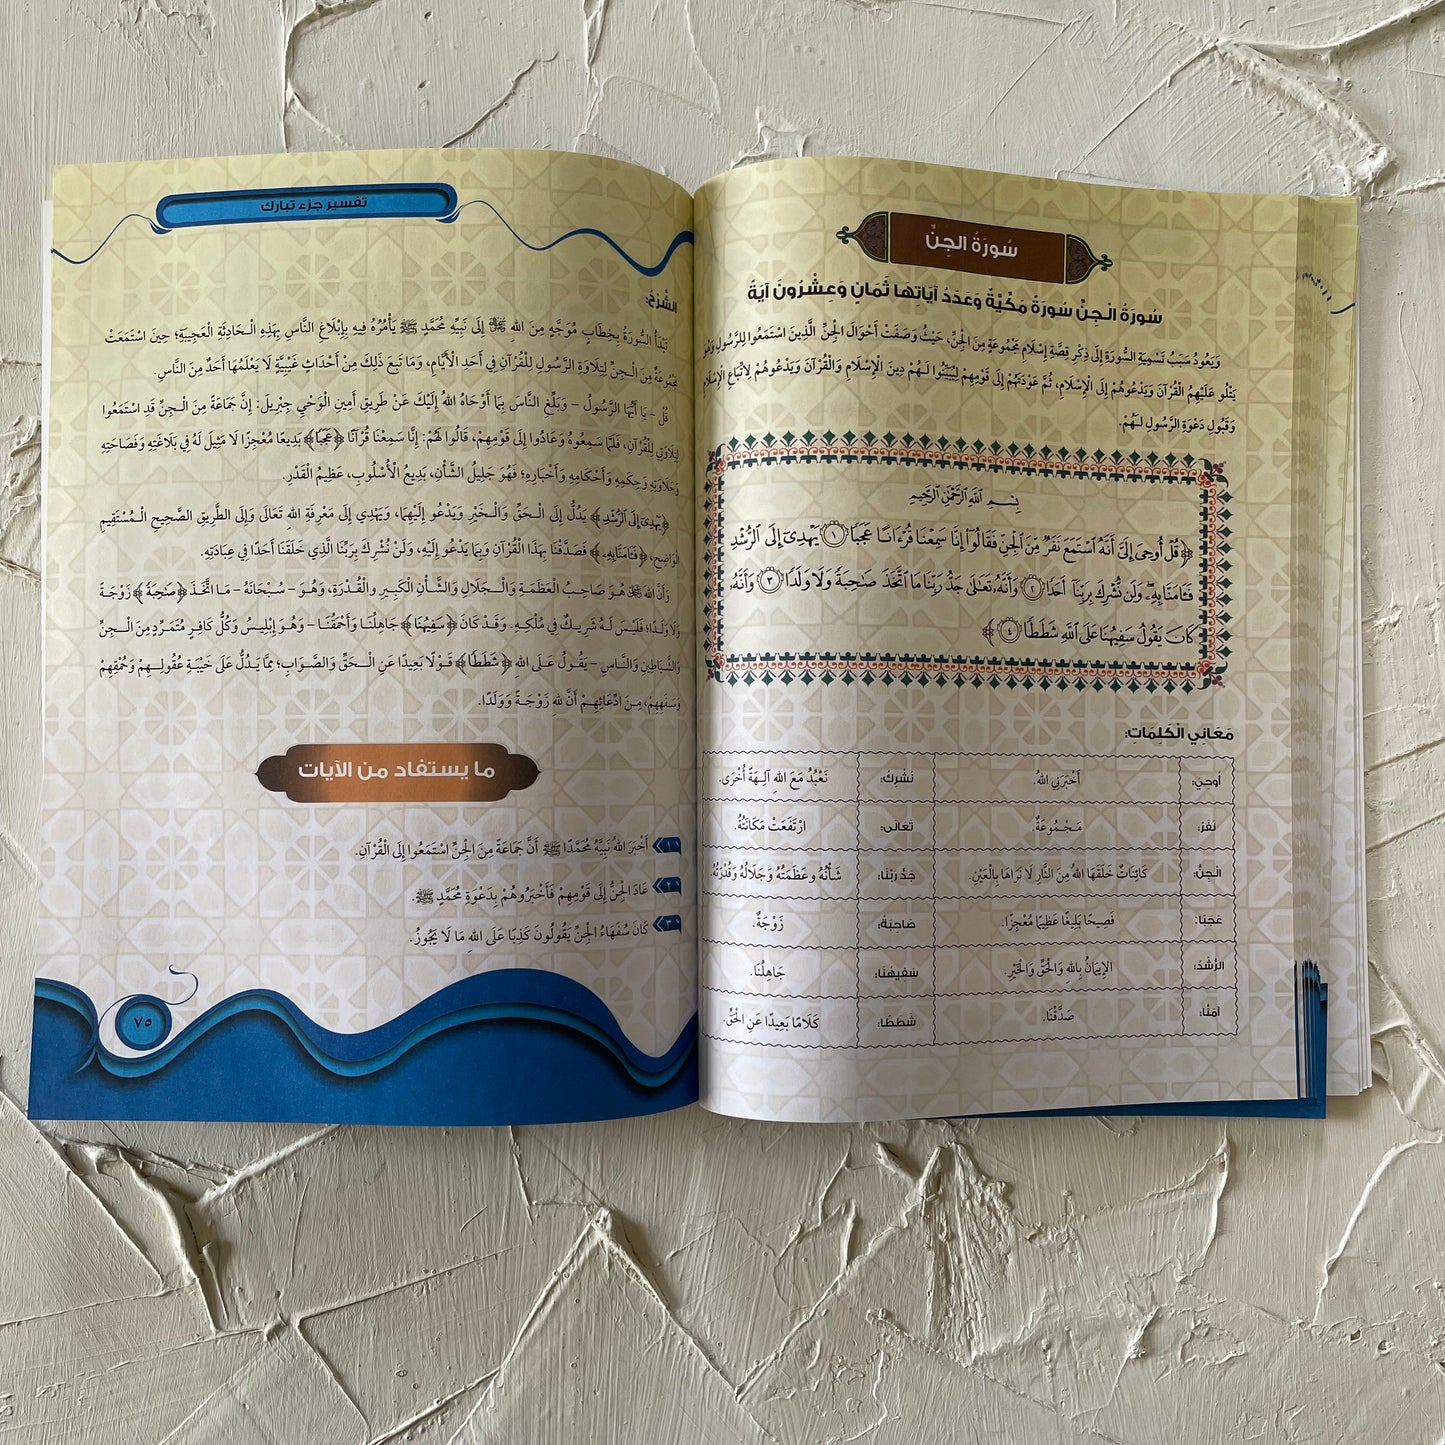 سُورَةُ الجِنِّ
سُورَةُ الْجِنِّ سُورَةٌ مَكِّيَّةٌ وَعَدَدُ آيَاتِهَا ثَمَانٍ وَعِشْرُونَ آيَةً
وَيَعُودُ سَبَبُ تَسْمِيَةِ السُّورَةِ إِلَى ذِكْرِ قِصَّةِ إِسْلَامِ مَجْمُوعَةٍ مِنَ الْجِنِّ، حَيْثُ وَصَفَتْ أَحْوَالَ الْجِنِّ الَّذِينَ اسْتَمَعُوا لِلرَّسُولِ وَهُوَ
يَتْلُو عَلَيْهِمُ الْقُرْآنَ وَيَدْعُوهُمْ إِلَى الْإِسْلَامِ، ثُمَّ عَوْدَتَهُمْ إِلَى قَوْمِهِمْ لِيُبَيِّنُوا لَهُمْ دِينَ الْإِسْلَامِ وَالْقُرْآنَ وَيَدْعُوهُمْ لِاتِّبَاعِ الْإِسْلَامِ
وَقَبُولِ دَعْوَةِ الرَّسُولِ لَهُمْ.
بِسْمِ اللَّهِ الرَّحْمَٰنِ الرَّحِيمِ
﴿قُلْ أُوحِيَ إِلَيَّ أَنَّهُ ٱسْتَمَعَ نَفَرٌ مِّنَ ٱلْجِنِّ فَقَالُوٓا۟ إِنَّا سَمِعْنَا قُرْءَانًا عَجَبًا ١ يَهْدِىٓ إِلَى ٱلرُّشْدِ
فَـَٔامَنَّا بِهِۦ وَلَن نُّشْرِكَ بِرَبِّنَآ أَحَدًا ٢ وَأَنَّهُۥ تَعَٰلَىٰ جَدُّ رَبِّنَا مَا ٱتَّخَذَ صَٰحِبَةً وَلَا وَلَدًا ٣ وَأَنَّهُۥ
كَانَ يَقُولُ سَفِيهُنَا عَلَى ٱللَّهِ شَطَطًا ٤﴾
مَعَانِي الْكَلِمَاتِ:
أُوحِيَ: أَخْبَرَنِي اللهُ. نُشْرِكَ: نَعْبُدُ مَعَ اللهِ آلِهَةً أُخْرَى.
نَفَرٌ: مَجْمُوعَةٌ. تَعَالَى: ارْتَفَعَتْ مَكَانَتُهُ.
الْجِنُّ: كَائِنَاتٌ خَلَقَهَا اللهُ مِنَ النَّارِ لَا نَرَاهَا بِالْعَيْنِ. جَدُّ رَبِّنَا: شَأْنُهُ وعَظَمَتُهُ وَجَلَالُهُ وَقُدْرَتُهُ.
عَجَبًا: فَصِيحًا بَلِيغًا عَظِيمًا مُعْجِزًا. صَاحِبَةً: زَوْجَةً.
الرُّشْدُ: الْإِيمَانُ بِاللهِ وَالْحَقِّ وَالْخَيْرِ. سَفِيهُنَا: جَاهِلُنَا.
آمَنَّا: صَدَّقْنَا. شَطَطًا: كَلَامًا بَعِيدًا عَنِ الْحَقِّ.
تفسير جزء تبارك
الشَّرْحُ:
تَبْدَأُ السُّورَةُ بِخِطَابٍ مُوَجَّهٍ مِنَ اللهِ ﷻ إِلَى نَبِيِّهِ مُحَمَّدٍ ﷺ يَأْمُرُهُ فِيهِ بِإِبْلَاغِ النَّاسِ بِهَذِهِ الْحَادِثَةِ الْعَجِيبَةِ؛ حِينَ اسْتَمَعَتْ
مَجْمُوعَةٌ مِنَ الْجِنِّ لِتِلَاوَةِ الرَّسُولِ لِلْقُرْآنِ فِي أَحَدِ الْأَيَّامِ، وَمَا تَبَعَ ذَلِكَ مِنْ أَحْدَاثٍ غَيْبِيَّةٍ لَا يَعْلَمُهَا أَحَدٌ مِنَ النَّاسِ.
قُلْ - يَا أَيُّهَا الرَّسُولُ - وَبَلِّغِ النَّاسَ بِمَا أَوْحَاهُ اللهُ إِلَيْكَ عَنْ طَرِيقِ أَمِينِ الْوَحْيِ جِبْرِيلَ: إِنَّ جَمَاعَةً مِنَ الْجِنِّ قَدِ اسْتَمَعُوا
لِتِلَاوَتِي لِلْقُرْآنِ، فَلَمَّا سَمِعُوهُ وَعَادُوا إِلَى قَوْمِهِمْ، قَالُوا لَهُمْ: إِنَّا سَمِعْنَا قُرْآنًا ﴿عَجَبًا﴾ بَدِيعًا مُعْجِزًا لَا مَثِيلَ لَهُ فِي بَلَاغَتِهِ وَفَصَاحَتِهِ
وَحَلَاوَتِهِ وَحِكَمِهِ وَأَحْكَامِهِ وَأَخْبَارِهِ؛ فَهُوَ جَلِيلُ الشَّأْنِ، بَدِيعُ الْأُسْلُوبِ، عَظِيمُ الْقَدْرِ.
﴿يَهْدِىٓ إِلَى ٱلرُّشْدِ﴾ يَدُلُّ إِلَى الْحَقِّ وَالْخَيْرِ وَيَدْعُو إِلَيْهِمَا، وَيَهْدِي إِلَى مَعْرِفَةِ اللهِ تَعَالَى وَإِلَى الطَّرِيقِ الصَّحِيحِ الْمُسْتَقِيمِ
الْوَاضِحِ، ﴿فَـَٔامَنَّا بِهِۦ﴾ فَصَدَّقْنَا بِهَذَا الْقُرْآنِ وَبِمَا يَدْعُو إِلَيْهِ، وَلَنْ نُشْرِكَ بِرَبِّنَا الَّذِي خَلَقَنَا أَحَدًا فِي عِبَادَتِهِ.
وَأَنَّ اللهَ ﷻ هُوَ صَاحِبُ الْعَظَمَةِ وَالْجَلَالِ وَالشَّأْنِ الْكَبِيرِ وَالْقُدْرَةِ، وَهُوَ - سُبْحَانَهُ - مَا اتَّخَذَ ﴿صَٰحِبَةً﴾ زَوْجَةً
وَلَا وَلَدًا؛ فَلَيْسَ لَهُ شَرِيكٌ فِي مُلْكِهِ. وَقَدْ كَانَ ﴿سَفِيهُنَا﴾ جَاهِلُنَا وَأَحْمَقُنَا - وَهُوَ إِبْلِيسُ وَكُلُّ كَافِرٍ مُتَمَرِّدٍ مِنَ الْجِنِّ
وَالشَّيَاطِينِ وَالنَّاسِ - يَقُولُ عَلَى اللهِ ﴿شَطَطًا﴾ قَوْلًا بَعِيدًا عَنِ الْحَقِّ وَالصَّوَابِ؛ مِمَّا يَدُلُّ عَلَى خَيْبَةِ عُقُولِهِمْ وَحُمْقِهِمْ
وَسَفَهِهِمْ، مِنَ ادِّعَائِهِمْ أَنَّ لِلهِ زَوْجَةً وَوَلَدًا.
ما يستفاد من الآيات
١ أَخْبَرَ اللهُ نَبِيَّهُ مُحَمَّدًا ﷺ أَنَّ جَمَاعَةً مِنَ الْجِنِّ اسْتَمَعُوا إِلَى الْقُرْآنِ.
٢ عَادَ الْجِنُّ إِلَى قَوْمِهِمْ فَأَخْبَرُوهُمْ بِدَعْوَةِ مُحَمَّدٍ ﷺ.
٣ كَانَ سُفَهَاءُ الْجِنِّ يَقُولُونَ كَذِبًا عَلَى اللهِ مَا لَا يَجُوزُ.
٧٥